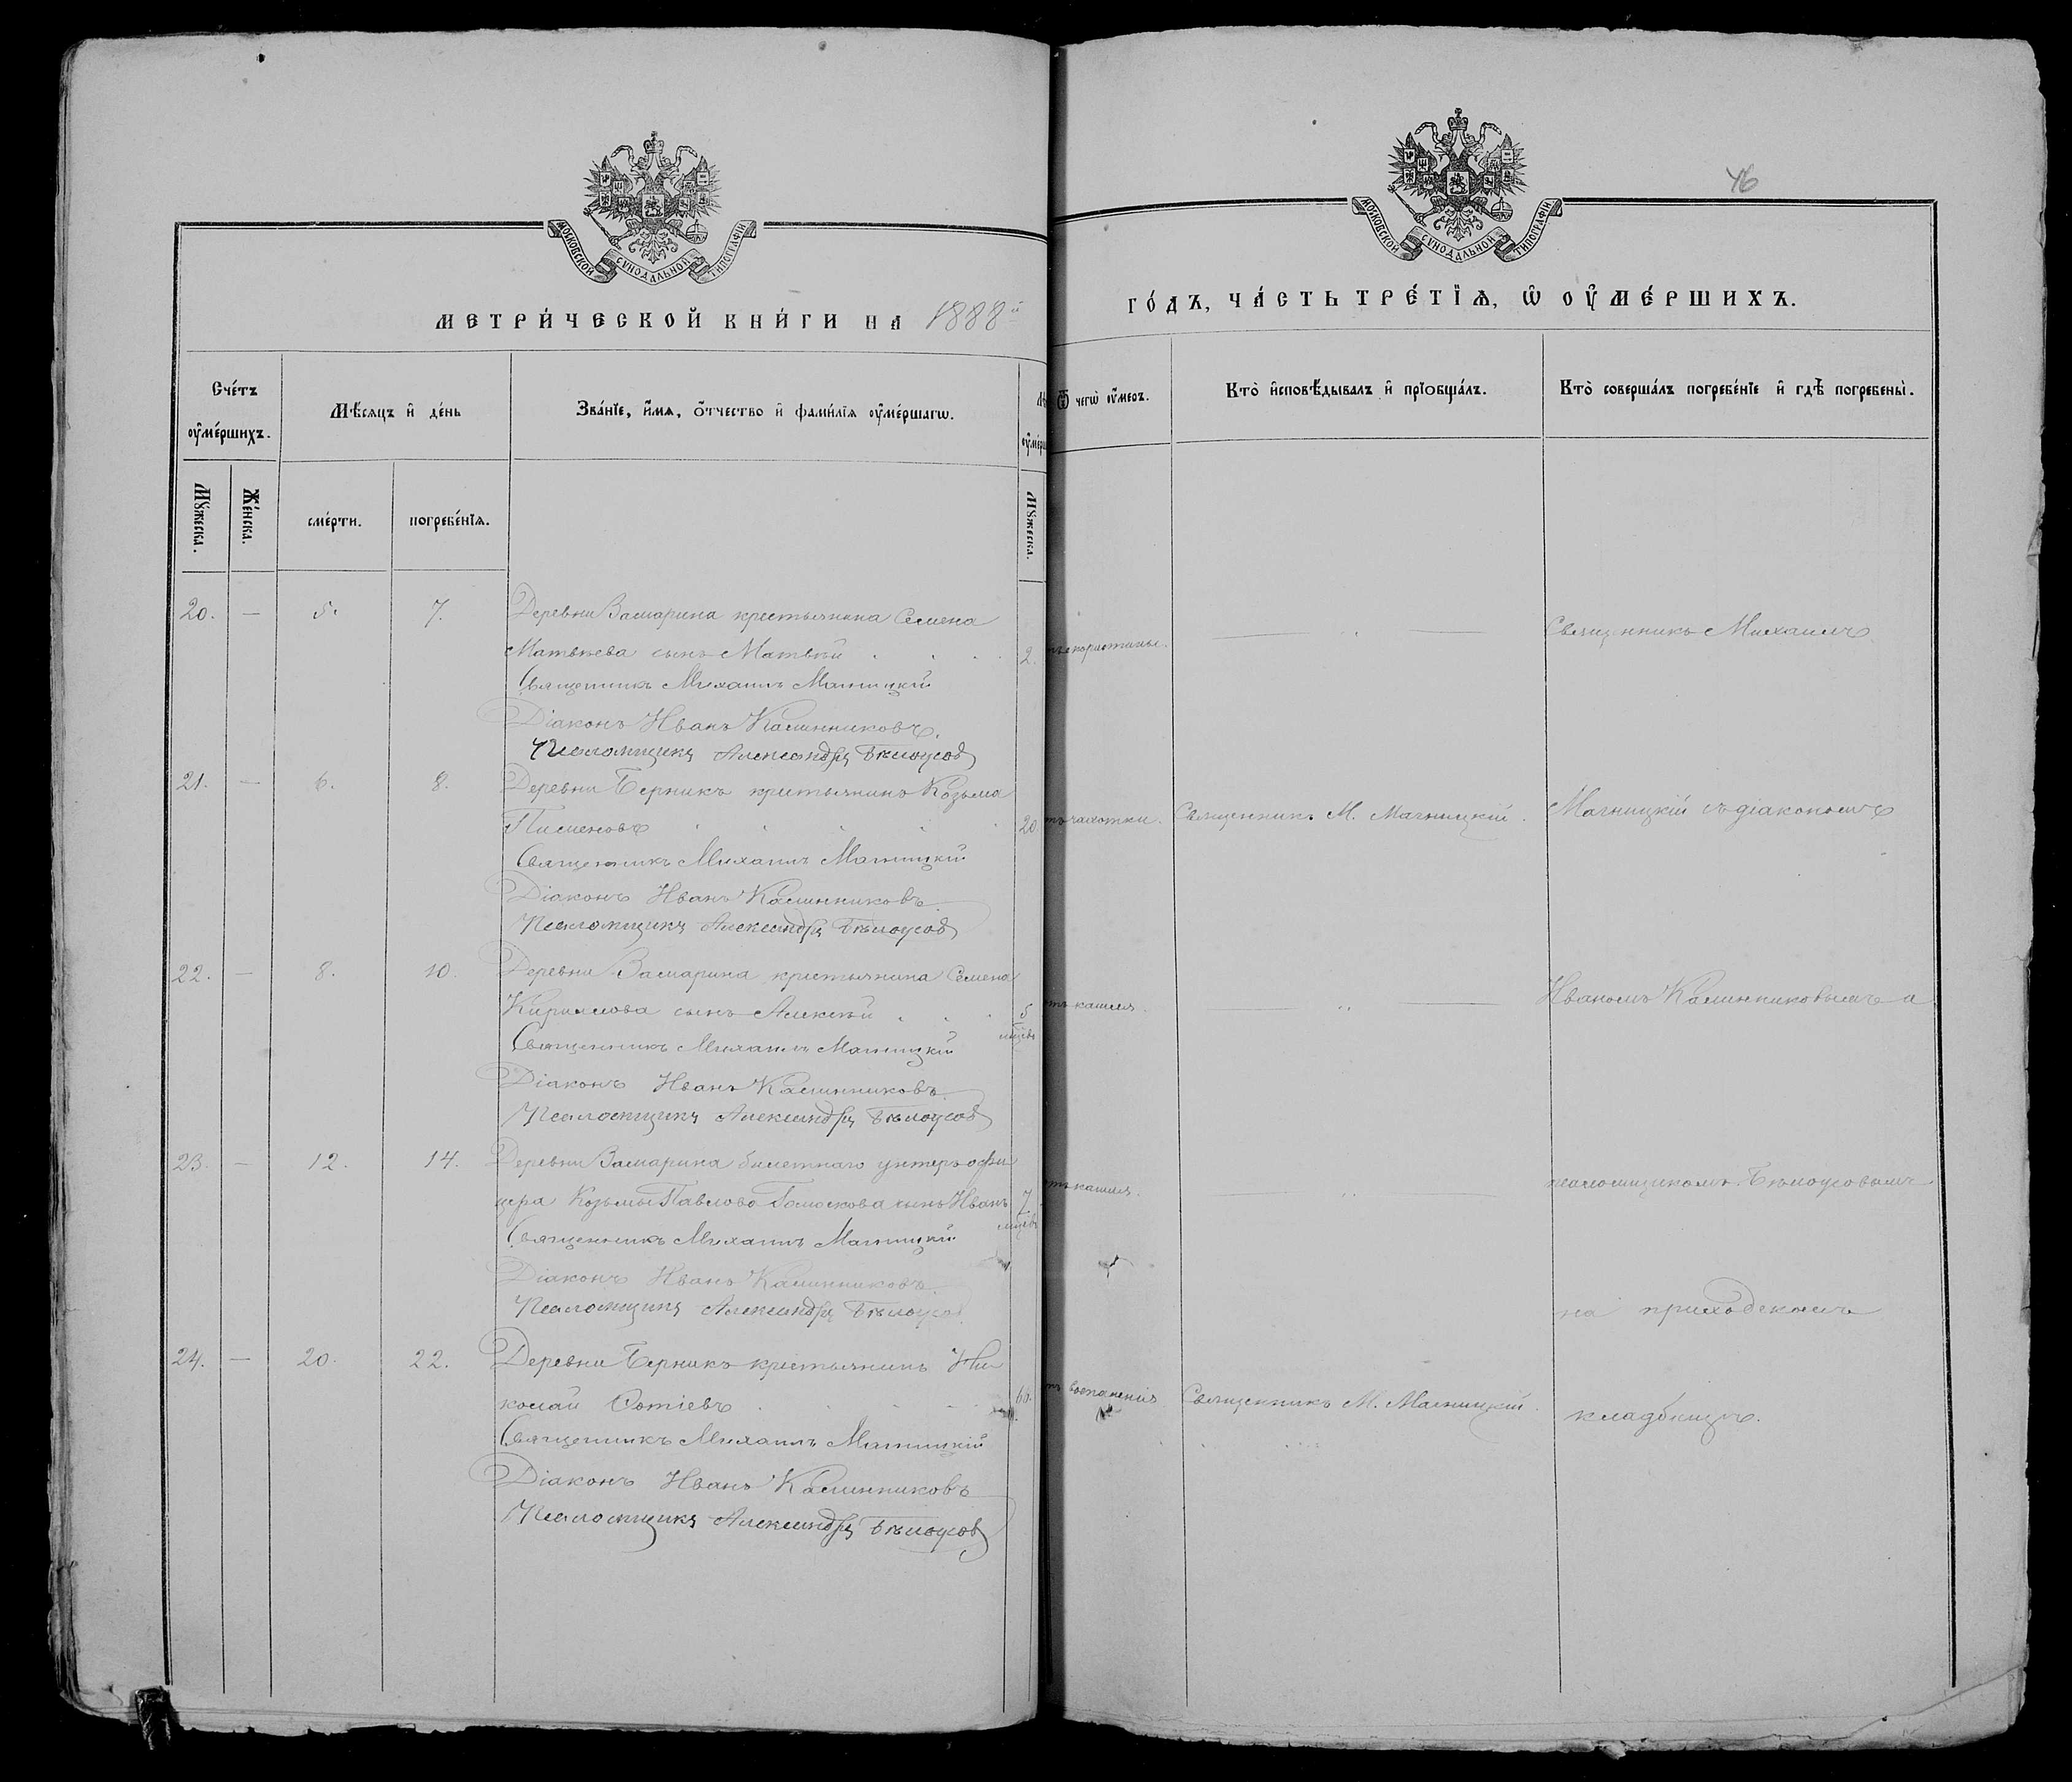 МОСКОВСКОЙ СУНОДАЛЬНОЙ ТИПОГРАФІИ
МЕТРИ́ЧЕСКОЙ КНИ́ГИ НА 1888й
Сче́тъ
оу҆ме́ршихъ.
Мѣ́сяцъ и҆ де́нь
Зва́нїе, и҆́мѧ, ѻ҆́тчество и҆ фами́лїѧ оу҆ме́ршагѡ.
Мꙋ́жеска.
Же́нска.
сме́рти.
погребе́нїѧ.
Мꙋ́жеска.
20. — 5. 7. Деревни Замарина крестьянина Семена
Матвѣева сынъ Матвѣй . . . . 2.
Священникъ Михаилъ Магницкій
Діаконъ Иванъ Калинниковъ.
Псаломщикъ Александръ Бѣлоусов
21. — 6. 8. Деревни Берникъ крестьянинъ Козьма
Пименовъ . . . . . 20.
Священникъ Михаилъ Магницкій
Діаконъ Иванъ Калинниковъ.
Псаломщикъ Александръ Бѣлоусов
22. — 8. 10. Деревни Замарина крестьянина Семена
Кириллова сынъ Алексѣй . . . 5
мѣсцевъ
Священникъ Михаилъ Магницкій
Діаконъ Иванъ Калинниковъ.
Псаломщикъ Александръ Бѣлоусов
23. — 12. 14. Деревни Замарина билетнаго унтеръ-офи
цера Козьмы Павлова сынъ Иванъ 7.
мѣсцевъ
Священникъ Михаилъ Магницкій
Діаконъ Иванъ Калинниковъ.
Псаломщикъ Александръ Бѣлоусов
24. — 20. 22. Деревни Берникъ крестьянинъ Ни
колай Фотіевъ . . . . 60.
Священникъ Михаилъ Магницкій
Діаконъ Иванъ Калинниковъ
Псаломщикъ Александръ Бѣлоусов
46
МОСКОВСКОЙ СУНОДАЛЬНОЙ ТИПОГРАФІИ
ГО́ДЪ, ЧА́СТЬ ТРЕ́ТЇѦ, Ѡ҆ ОУ҆МЕ́РШИХЪ.
Ѿ чегѡ̀ оу҆́меръ.
Кто̀ и҆сповѣ́дывалъ и҆ прїѡбща́лъ.
Кто̀ соверша́лъ погребе́нїе и҆ гдѣ̀ погребены̀.
Священникъ Михаилъ
чахотки. Священникъ М. Магницкій. Магницкій съ діакономъ
отъ кашля. Иваномъ Калинниковымъ и
отъ кашля. псаломщикомъ Бѣлоусовымъ
на приходскомъ
воспаленія Священникъ М. Магницкій. кладбищѣ.